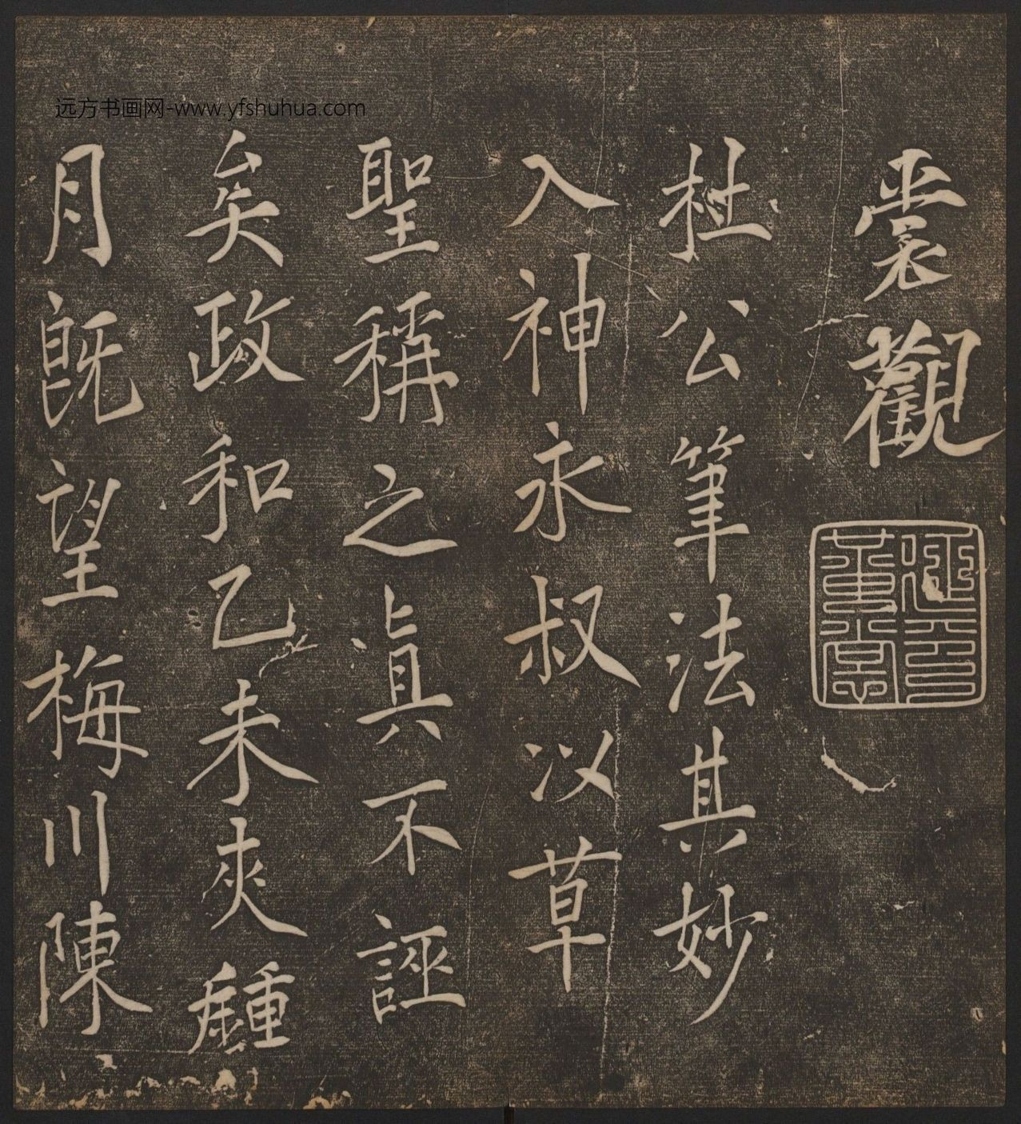 远方书画网-www.yfshuhua.com
裳觀
杜公筆法其妙
入神永叔以草
聖稱之真不誣
矣政和乙未夾鍾
月既望梅川陳